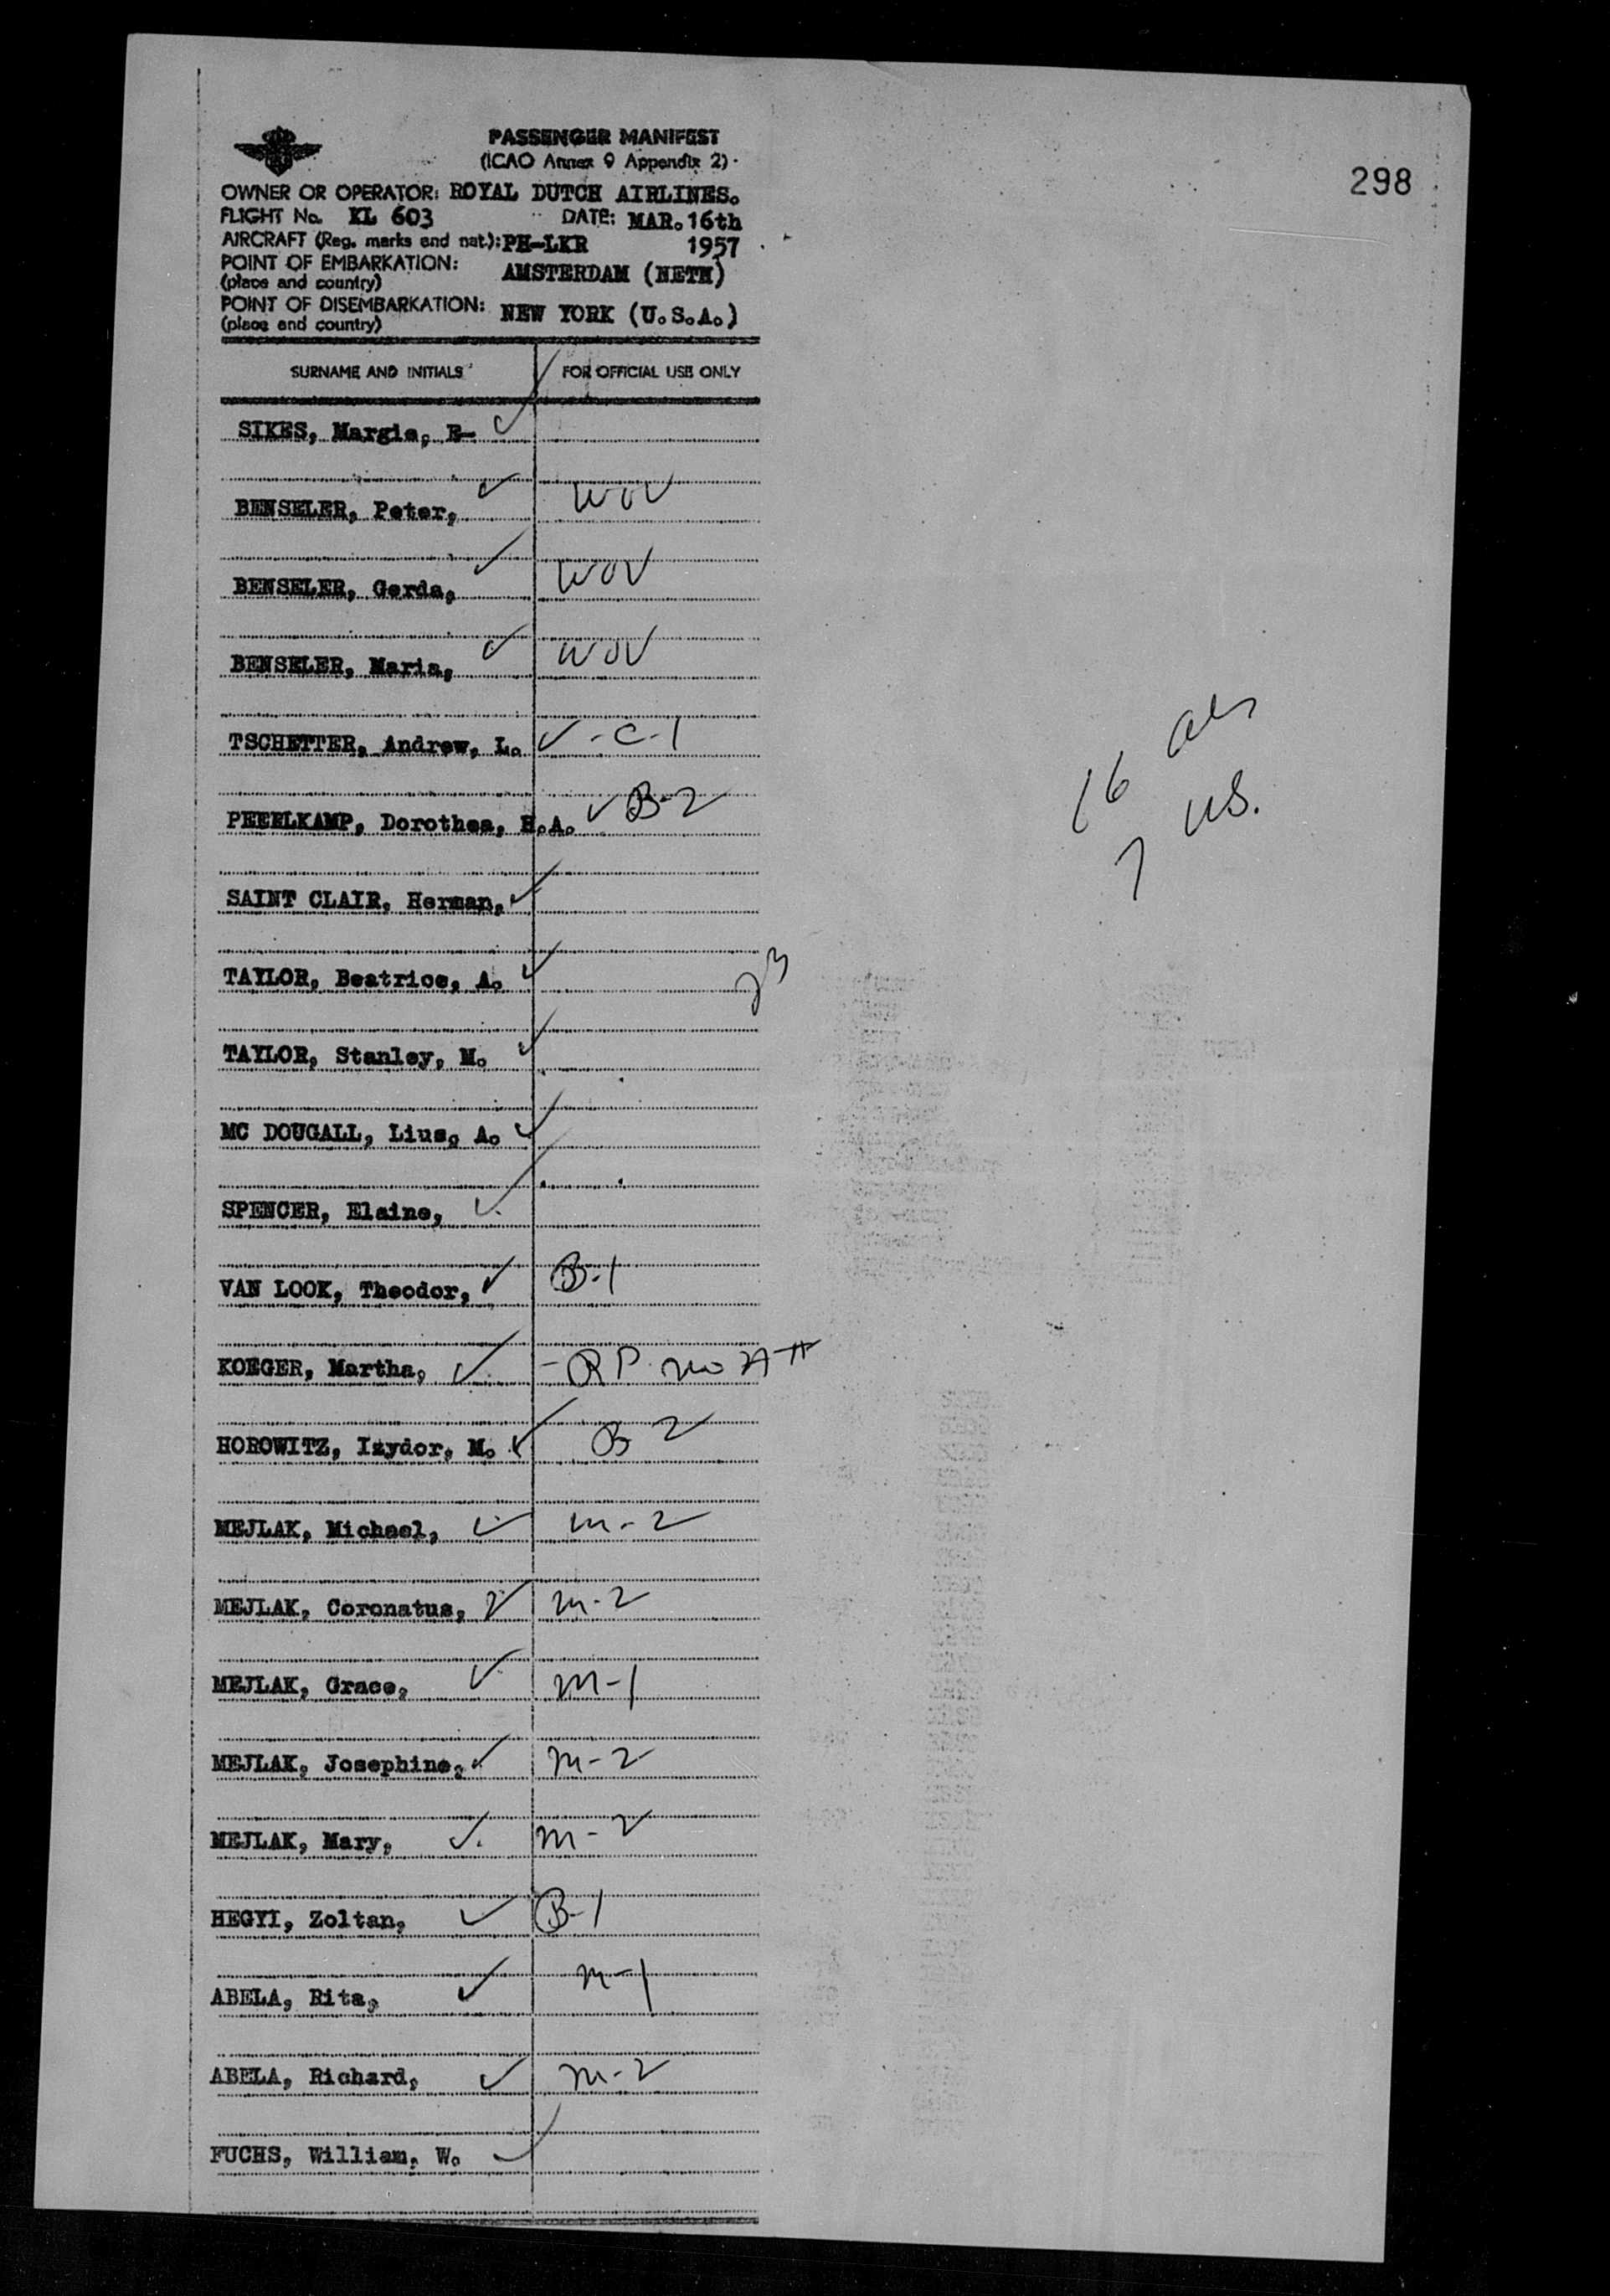 PASSENGER MANIFEST
(ICAO Annex 9 Appendix 2)
298
OWNER OR OPERATOR: ROYAL DUTCH AIRLINES.
FLIGHT No. KL 603 DATE: MAR. 16th
AIRCRAFT (Reg. marks and nat.): PH-LKR 1957
POINT OF EMBARKATION: AMSTERDAM (NETH)
(place and country)
POINT OF DISEMBARKATION: NEW YORK (U.S.A.)
(place and country)
SURNAME AND INITIALS FOR OFFICIAL USE ONLY
SIKES, Margie, E- ✓
BENSELER, Peter, ✓ WOV
BENSELER, Gerda, ✓ WOV
BENSELER, Maria, ✓ WOV
TSCHETTER, Andrew, L. ✓ -C-1
PEEELKAMP, Dorothea, H.A. ✓ B-2
SAINT CLAIR, Herman, ✓
TAYLOR, Beatrice, A. ✓
23
TAYLOR, Stanley, M. ✓
MC DOUGALL, Lius, A. ✓
SPENCER, Elaine, ✓
VAN LOOK, Theodor, ✓ B-1
KOEGER, Martha, ✓ - RP no
HOROWITZ, Izydor, M. ✓ B 2
MEJLAK, Michael, ✓ m-2
MEJLAK, Coronatus, ✓ m-2
MEJLAK, Grace, ✓ m-1
MEJLAK, Josephine, ✓ m-2
MEJLAK, Mary, ✓ m-2
HEGYI, Zoltan, ✓ B-1
ABELA, Rita, ✓ m-1
ABELA, Richard, ✓ m-2
FUCHS, William, W. ✓
16
7 US.